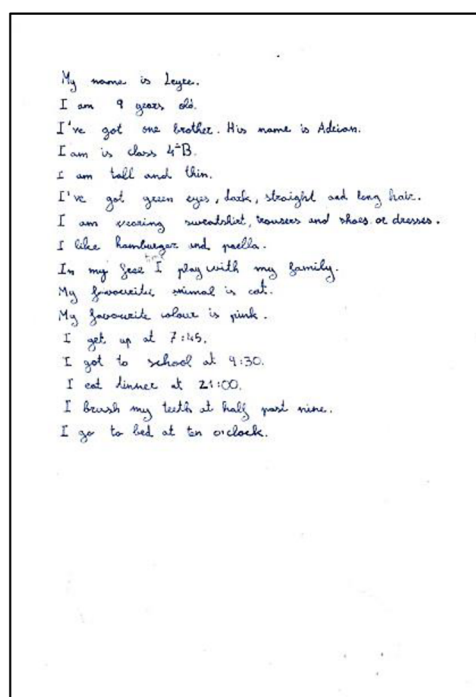 My name is Leyre.
I am 9 years old.
I've got one brother. His name is Adrian.
I am is class 4ºB.
I am tall and thin.
I've got green eyes, dark, straight and long hair.
I am wearing sweatshirt, trousers and shoes or dresses.
I like hamburger and paella.
In my free time I play with my family.
My favourite animal is cat.
My favourite colour is pink.
I get up at 7:45.
I got to school at 9:30.
I eat dinner at 21:00.
I brush my teeth at half past nine.
I go to bed at ten o'clock.